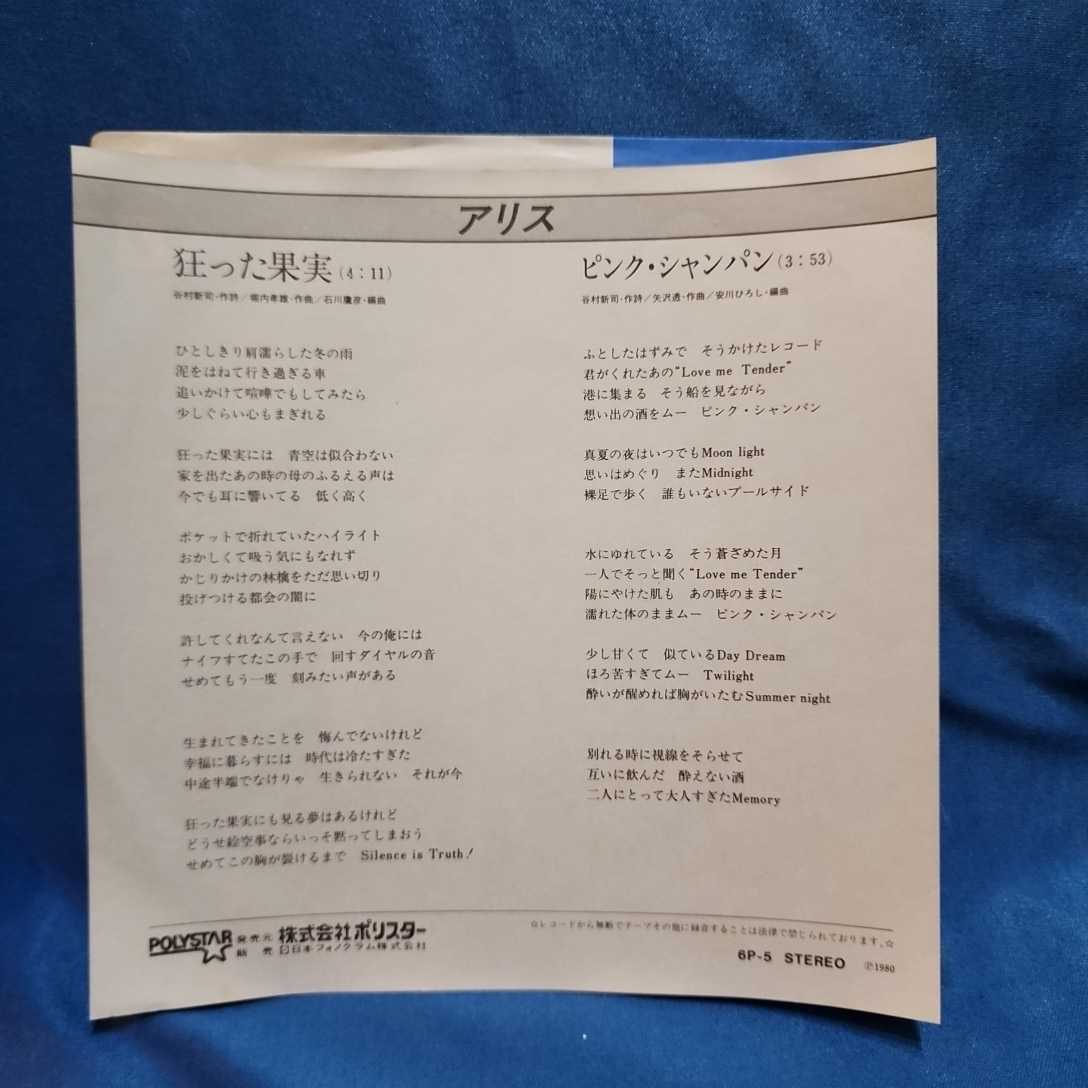 アリス
狂った果実(4:11)
谷村新司・作詩/堀内孝雄・作曲/石川鷹彦・編曲
ひとしきり肩濡らした冬の雨
泥をはねて行き過ぎる車
追いかけて喧嘩でもしてみたら
少しぐらい心もまぎれる
狂った果実には 青空は似合わない
家を出たあの時の母のふるえる声は
今でも耳に響いてる 低く高く
ポケットで折れていたハイライト
おかしくて吸う気にもなれず
かじりかけの林檎をただ思い切り
投げつける都会の闇に
許してくれなんて言えない 今の俺には
ナイフすてたこの手で 回すダイヤルの音
せめてもう一度 刻みたい声がある
生まれてきたことを 悔んでないけれど
幸福に暮らすには 時代は冷たすぎた
中途半端でなけりゃ 生きられない それが今
狂った果実にも見る夢はあるけれど
どうせ絵空事ならいっそ黙ってしまおう
せめてこの胸が裂けるまで Silence is Truth!
ピンク・シャンパン(3:53)
谷村新司・作詩/矢沢透・作曲/安川ひろし・編曲
ふとしたはずみで そうかけたレコード
君がくれたあの“Love me Tender”
港に集まる そう船を見ながら
想い出の酒をムー ピンク・シャンパン
真夏の夜はいつでもMoon light
思いはめぐり またMidnight
裸足で歩く 誰もいないプールサイド
水にゆれている そう蒼ざめた月
一人でそっと聞く“Love me Tender”
陽にやけた肌も あの時のままに
濡れた体のままムー ピンク・シャンパン
少し甘くて 似ているDay Dream
ほろ苦すぎてムー Twilight
酔いが醒めれば胸がいたむSummer night
別れる時に視線をそらせて
互いに飲んだ 酔えない酒
二人にとって大人すぎたMemory
POLYSTAR
発売元 株式会社ポリスター
販売 日本フォノグラム株式会社
☆レコードから無断でテープその他に録音することは法律で禁じられております。☆
6P-5 STEREO ℗1980